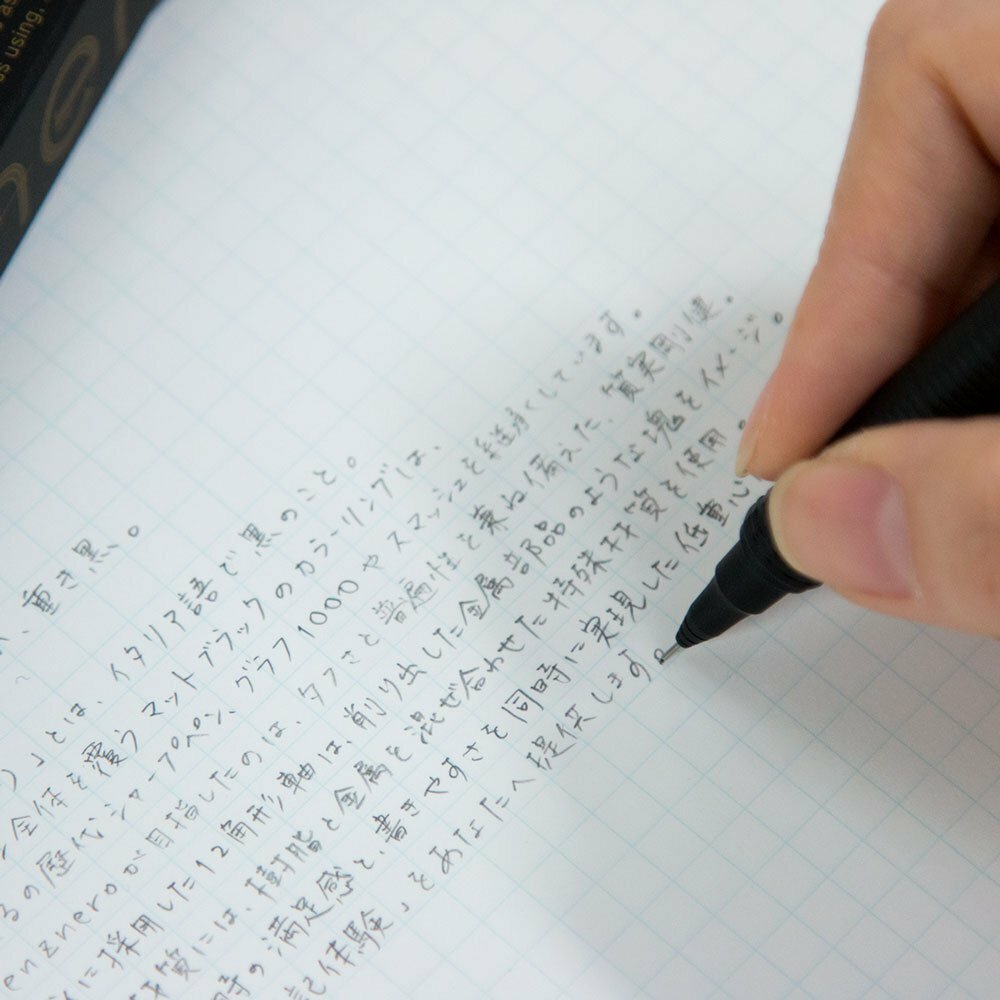 重き黒。
」とは、イタリア語で黒のこと。
全体を覆うマットブラックのカラーリングは、
の歴代シャープペン、グラフ1000やスマッシュを手遠くしています。
enzneroが目指したのは、タフさと普遍性を兼ね備えた、質実剛健。
に採用した12角形軸は、削り出した金属部品のような塊をイメージ。
質には、樹脂と金属を混ぜ合わせた特殊材質を使用。
時の満足感と、書きやすさを同時に実現した低重心
記体験」をあなたへ提供します。
as
ss using,